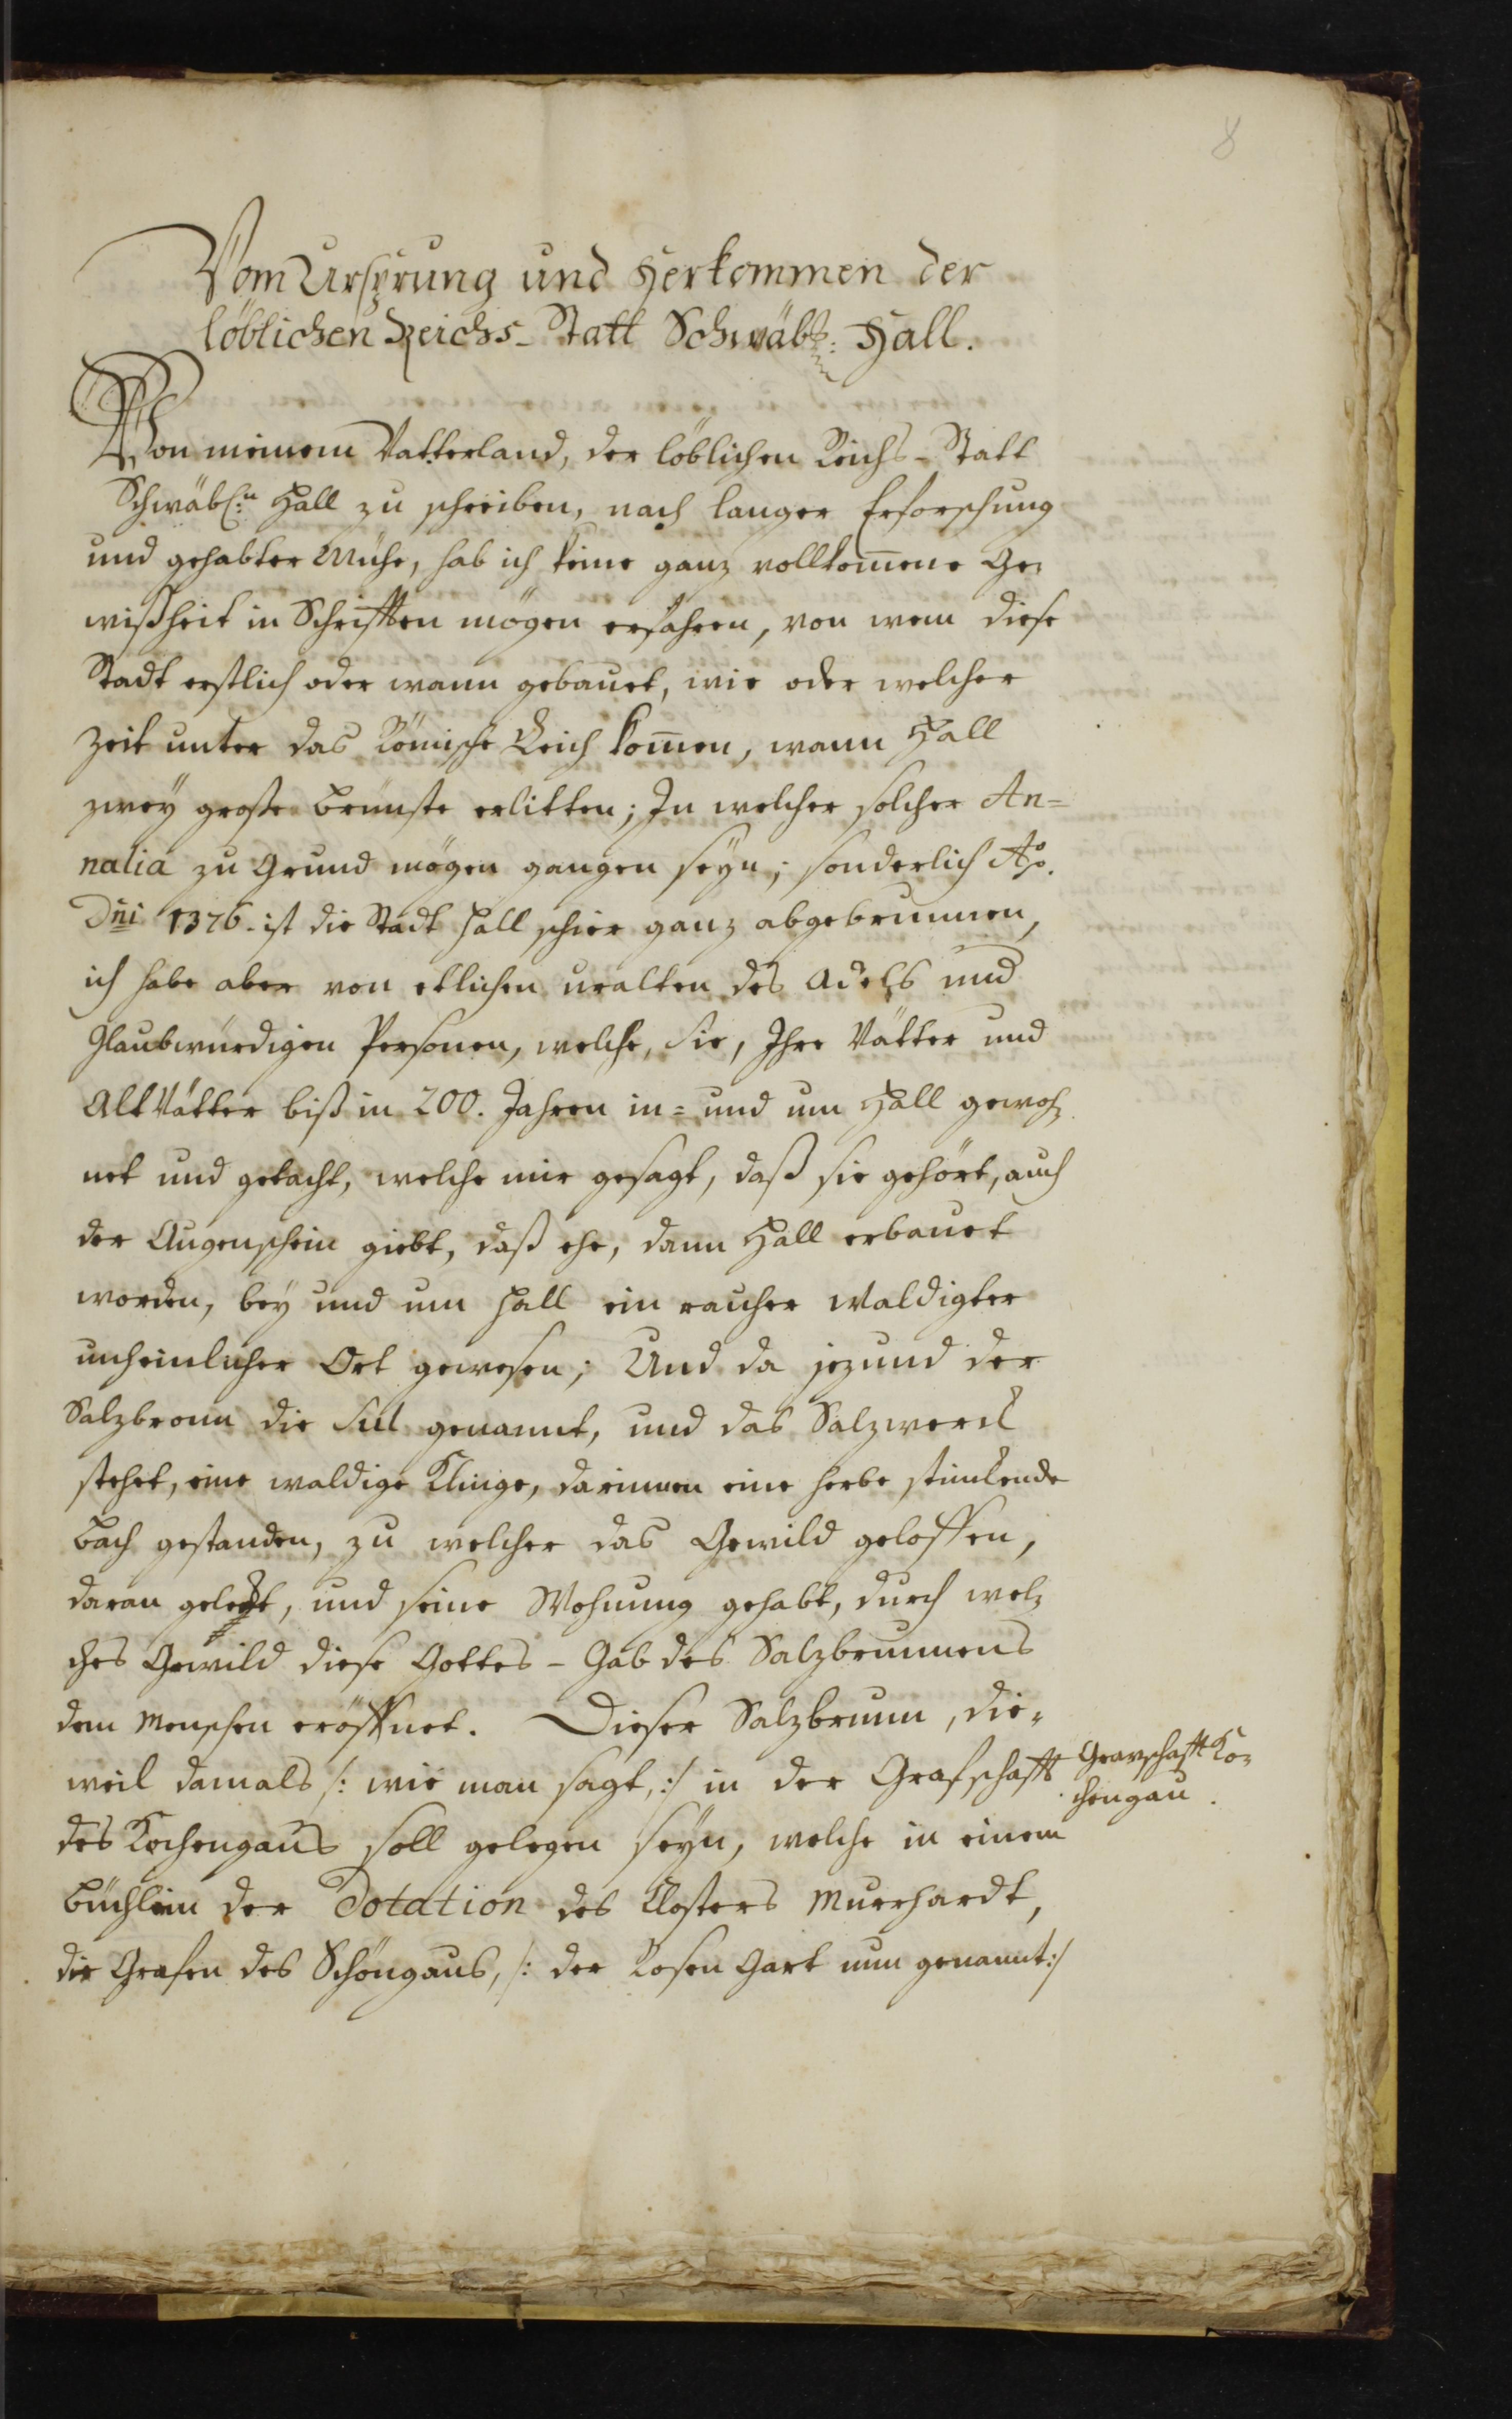 8
Vom Ursprung und Herkommen der
löblichen Reichs-Statt Schwäb: Hall.
Von meinem Vatterland, der löblichen Reichs-Statt
Schwäbs:n Hall zu schreiben, nach langer Erforschung
und gehabter Mühe, hab ich keine ganz vollkom̅ene Ge-
wißheit in Schrifften mögen erfahren, von wem diese
Stadt erstlich oder wann gebauet, wie oder welcher
Zeit unter das Römische Reich kom̅en, wann Hall
zwey große Brünste erlitten; In welcher solcher An=
nalia zu Grund mögen gangen seyn; sonderlich Ao.
Dni 1376. ist die Stadt Hall schier ganz abgebrunnen,
ich habe aber von etlichen uralten des Adels und
Glaubwürdigen Personen, welche, Sie, Ihre Vätter und
AltVätter biß in 200. Jahren in= und um Hall gewoh-
net und getacht, welche mir gesagt, daß sie gehört, auch
der Augenschein giebt, daß ehe, dann Hall erbauet
worden, bey und um Hall ein raucher waldigter
unheimlicher Ort gewesen; Und da jezund der
Salzbronn die Sul genannt, und das Salzwerck
stehet, eine waldige Klinge, darinnen eine herbe stinckende
Bach gestanden, zu welcher das Gewild geloffen,
daran geleckt, und seine Wohnung gehabt, durch wel-
ches Gewild diese Gottes-Gab des Salzbrunnens
dem Menschen eröffnet. Dieser Salzbrunn, die-
weil damals /: wie man sagt, :/ in der Grafschafft
Gravschafft Ko-
chengau.
des Kochengaus soll gelegen seyn, welche in einem
Büchlein der Dotation des Closters Murrhardt,
die Grafen des Schöngaus, /: der Rosen Gart nun genannt :/